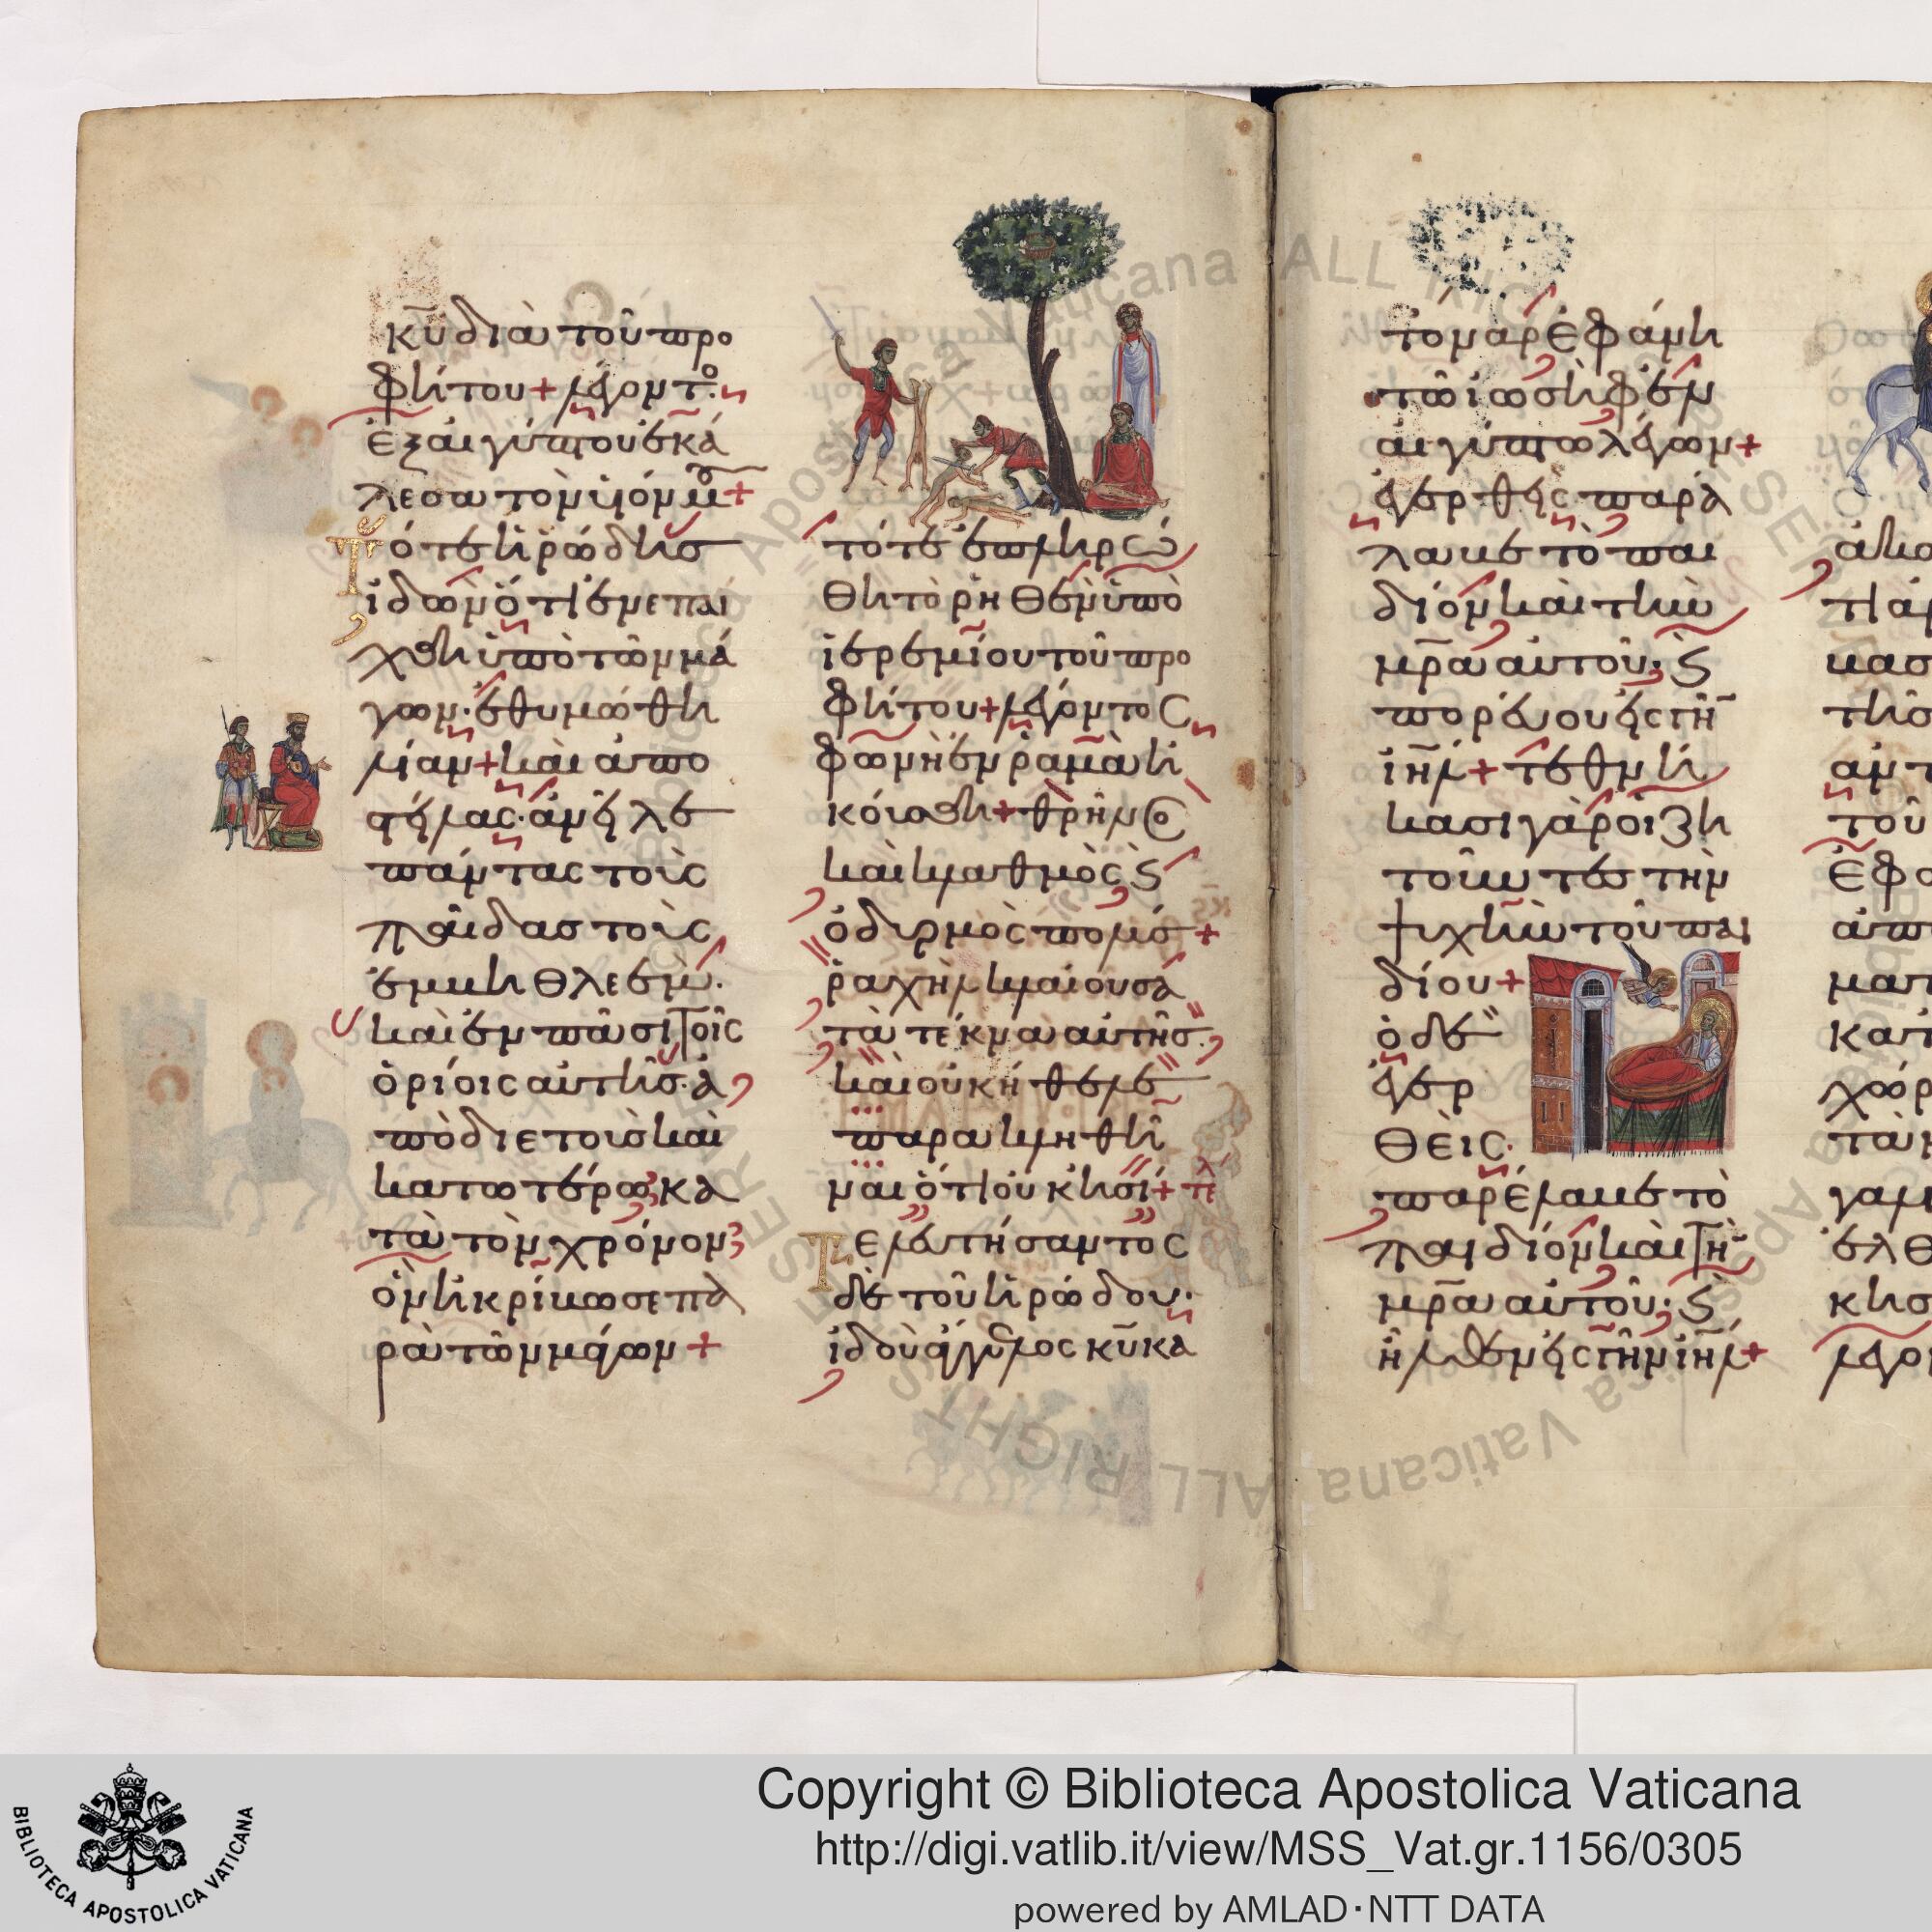 κῡ διὰ τοῦ προ
φήτου + λέγοντο
Ἐξ αἰγύπτου ἐκά
λεσα τὸν υἱόν μου +
Τότε ἡρώδης
ἰδὼν ὅτι ἐνεπαί
χθη ὑπὸ τῶν μά
γων· ἐθυμώθη
λίαν + καὶ ἀπο
στείλας· ἀνεῖλε
πάντας τοὺς
παῖδας τοὺς
ἐν βηθλεεὺμ·
καὶ ἐν πᾶσι τοῖς
ὁρίοις αὐτῆς· ἀ
πὸ διετοῦς καὶ
κατωτέρω κα
τὰ τὸν χρόνον
ὃν ἠκρίβωσε πα
ρὰ τῶν μάγων +
τότε ἐπληρώ
θη τὸ ῥηθὲν ὑπὸ
ἱερεμίου τοῦ προ
φήτου + λέγοντος
φωνὴ ἐν ῥαμὰ ἠ
κούσθη + θρῆνος
καὶ κλαυθμὸς καὶ
ὀδυρμὸς πολύς +
ῥαχὴλ κλαίουσα
τὰ τέκνα αὐτῆς·
καὶ οὐκ ἤθελε
παρακληθῆ
ναι ὅτι οὐκ εἰσί +
Τελευτήσαντος
δὲ τοῦ ἡρώδου·
ἰδοὺ ἄγγελος κῡ κα
τ' ὄναρ ἐφάνη
τῶ ἰωσὴφ ἐν
αἰγύπτω λέγων +
ἐγερθεὶς παρά
λαβε τὸ παι
δίον καὶ τὴν
μρ̄α αὐτοῦ· καὶ
πορεύου εἰς γῆν
ἰη̄λ + τεθνή
κασι γὰρ οἱ ζη
τοῦντες τὴν
ψυχὴν τοῦ παι
δίου +
ὁ δὲ
ἐγερ
θεὶς·
παρέλαβε τὸ
παιδίον καὶ τὴν
μρ̄α αὐτοῦ· καὶ
ἦλθεν εἰς γῆν ἰη̄λ +
Copyright © Biblioteca Apostolica Vaticana
http://digi.vatlib.it/view/MSS_Vat.gr.1156/0305
powered by AMLAD·NTT DATA
BIBLIOTECA APOSTOLICA VATICANA